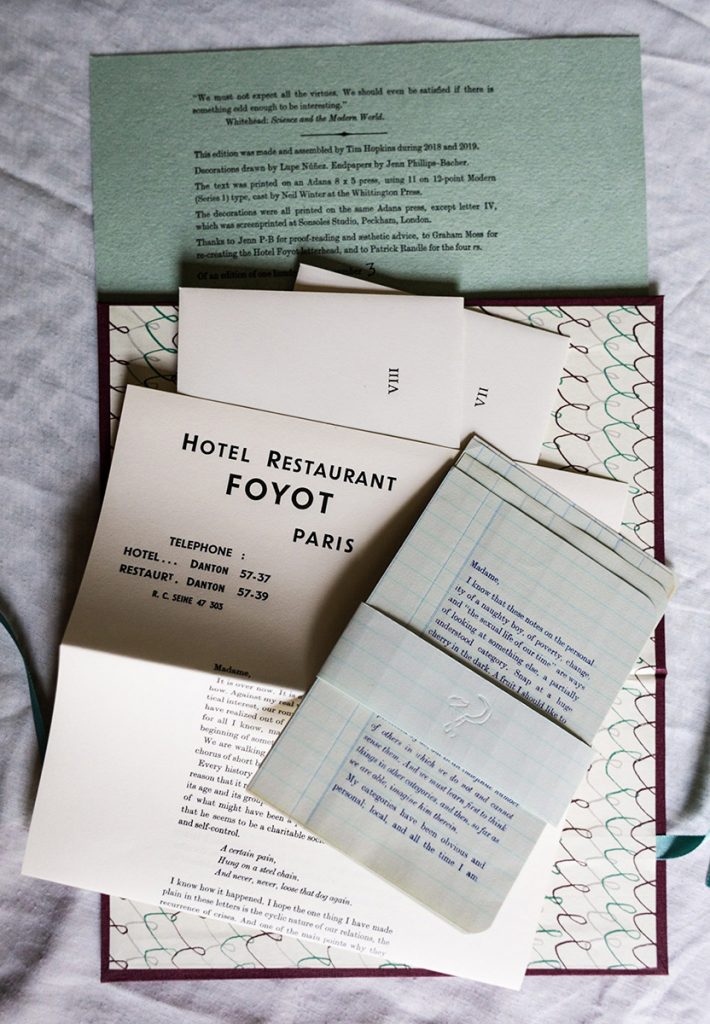 "We must not expect all the virtues. We should even be satisfied if there is
something odd enough to be interesting."
Whitehead: Science and the Modern World.
This edition was made and assembled by Tim Hopkins during 2018 and 2019.
Decorations drawn by Lupe Núñez. Endpapers by Jenn Phillips-Bacher.
The text was printed on an Adana 8 x 5 press, using 11 on 12-point Modern
(Series 1) type, cast by Neil Winter at the Whittington Press.
The decorations were all printed on the same Adana press, except letter IV,
which was screenprinted at Sonsoles Studio, Peckham, London.
Thanks to Jenn P-B for proof-reading and æsthetic advice, to Graham Moss for
re-creating the Hotel Foyot letterhead, and to Patrick Randle for the four rs.
Of an edition of one 3
VIII
VII
HOTEL RESTAURANT
FOYOT
PARIS
TELEPHONE :
HOTEL... DANTON 57-37
RESTAURT. DANTON 57-39
R. C. SEINE 47 303
Madame,
It is over now. It is
how. Against my real
tical interest, our
have realized out of
for all I know,
beginning of
We are walking
chorus of short
Every history
reason that it
its age and its
of what might have been a
that he seems to be a charitable
and self-control.
A certain pain,
Hung on a steel chain,
And never, never, loose that dog again.
I know how it happened. I hope the one thing I have made
plain in these letters is the cyclic nature of our relations, the
recurrence of crises. And one of the main points why they
Madame,
I know that these notes on the personal
ity of a naughty boy, of poverty, change,
and "the sexual life of our time" are ways
of looking at something else, a partially
understood category. Snap at a huge
cherry in the dark. A fruit I should like to
of others in which we do not and cannot
sense them. And we must learn first to think
things in other categories, and then, so far as
we are able, imagine him therein.
My categories have been obvious and
personal, local, and all the time I am